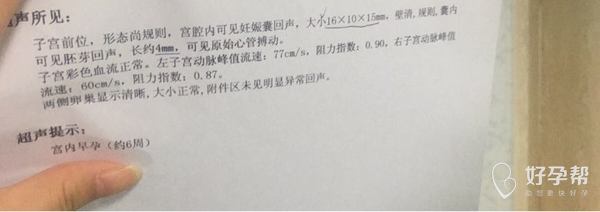 声所见：
子宫前位，形态尚规则，宫腔内可见妊娠囊回声，大小16×10×15mm，壁清,规则,囊内
可见胚芽回声，长约4mm，可见原始心管搏动。
子宫彩色血流正常。左子宫动脉峰值流速：77cm/s，阻力指数：0.90，右子宫动脉峰值
流速：60cm/s，阻力指数：0.87。
两侧卵巢显示清晰,大小正常,附件区未见明显异常回声。
超声提示：
宫内早孕（约6周）
好孕帮
助您更快好孕